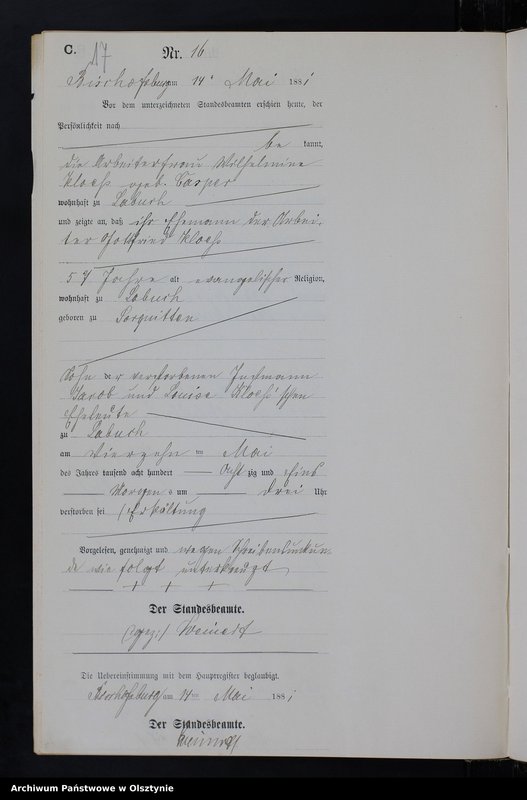 C.
17
Nr. 16
Bischofsburg am 14. Mai 1881
Vor dem unterzeichneten Standesbeamten erschien heute, der
Persönlichkeit nach
be kannt,
die Arbeiterfrau Wilhelmine
Kloess geb. Casper
wohnhaft zu Labuch
und zeigte an, daß ihr Ehemann der Arbei-
ter Gottfried Kloess
57 Jahre alt evangelischer Religion,
wohnhaft zu Labuch
geboren zu Sorquitten
Sohn der verstorbenen Instmann
Jacob und Louise Kloess'schen
Eheleute
zu Labuch
am vierzehn ten Mai
des Jahres tausend acht hundert acht zig und eins
Morgens um drei Uhr
verstorben sei (Erkältung
Vorgelesen, genehmigt und wegen Schreibensunkun-
de wie folgt unterkreuzt
+ + +
Der Standesbeamte.
(gez.)
Die Uebereinstimmung mit dem Hauptregister beglaubigt.
Bischofsburg am 14ten Mai 1881
Der Standesbeamte.
Archiwum Państwowe w Olsztynie